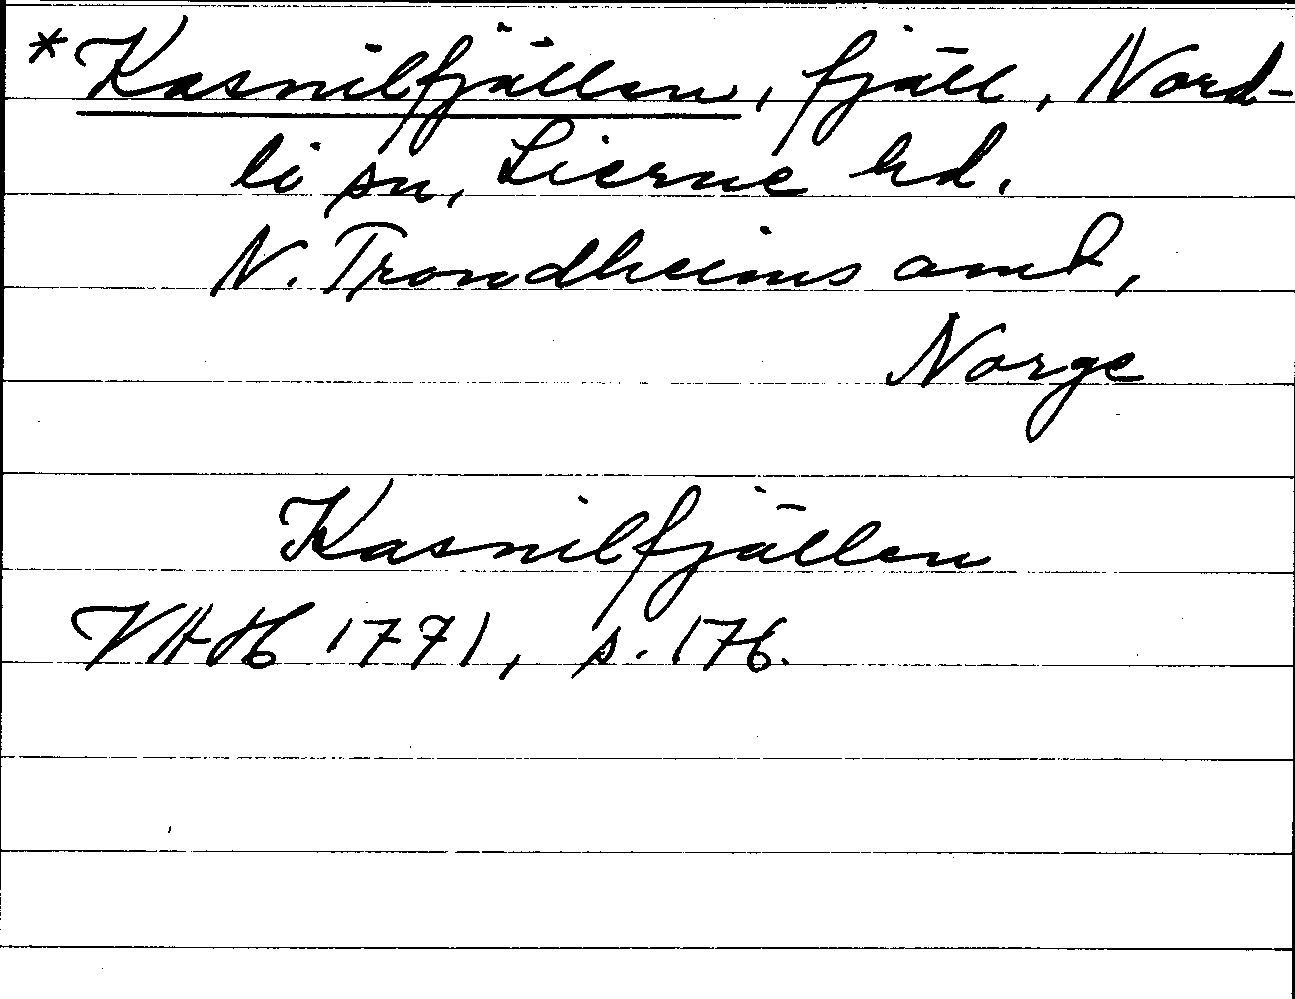 *Kasnilfjällen, fjäll, Nord-
li sn, Lierne hd.
N. Trondheims amt,
Norge
Kasnilfjällen
VHH 1771, s. 176.